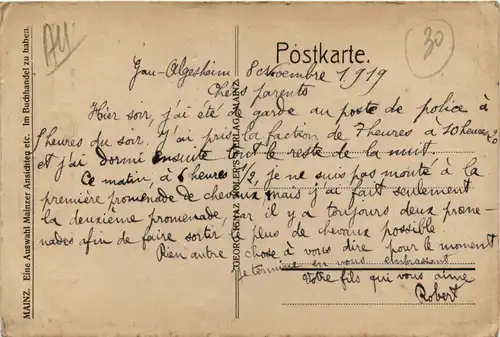 AU
30
Postkarte.
MAINZ. Eine Auswahl Mainzer Ansichten etc. im Buchhandel zu haben.
GEORG IGNAZ VERLAG MAINZ
Gau-Algesheim 8 Novembre 1919
Chers parents
Hier soir, j'ai été de garde au poste de police à
heures du soir. J'ai pris la faction de 7 heures à 10 heures
et j'ai dormi ensuite tout le reste de la nuit.
Ce matin, à 6 heures 1/2, je ne suis pas monté à la
première promenade de chevaux mais j'ai fait seulement
la deuxième promenade, car il y a toujours deux prome-
nades afin de faire sortir le plus de chevaux possible.
Rien autre chose à vous dire pour le moment
Je termine en vous embrassant
Votre fils qui vous aime
Robert